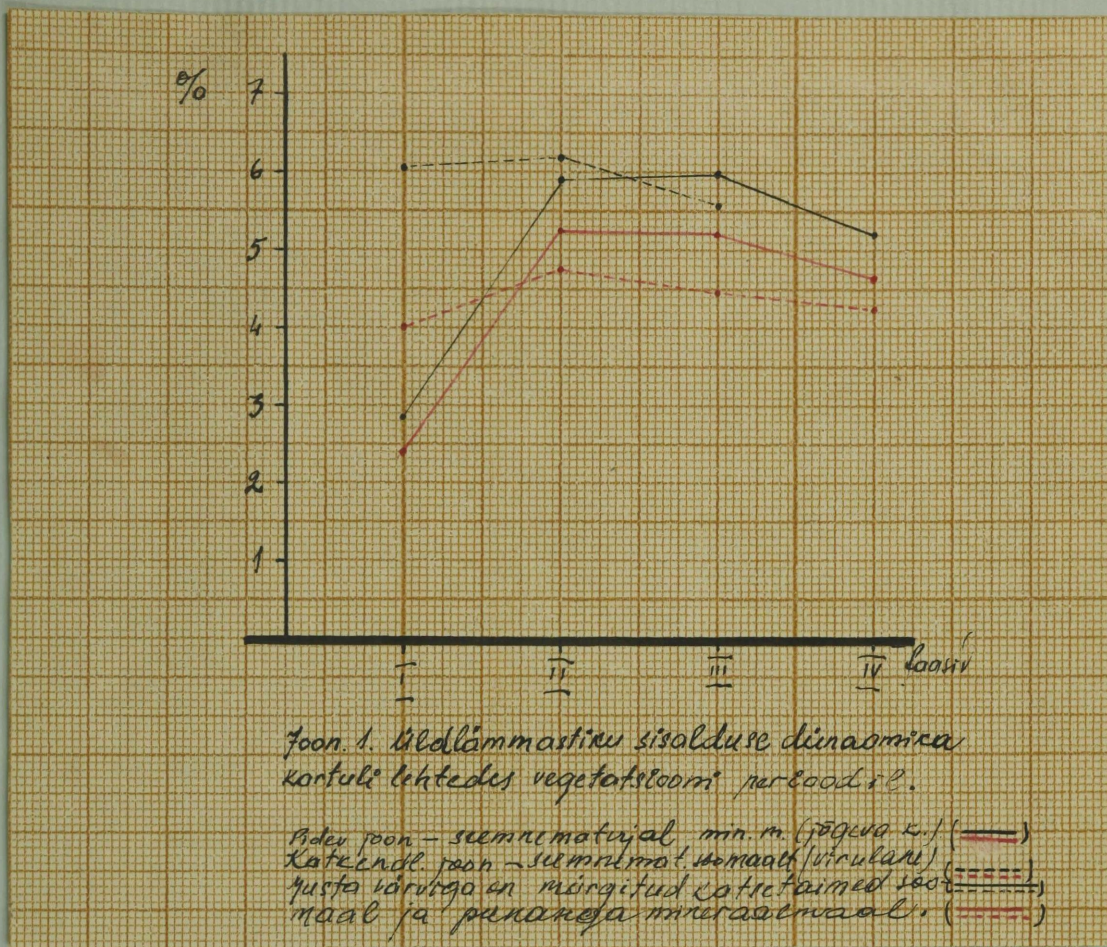 %
7
6
5
4
3
2
1
I II III IV faasiv
Joon. 1. Üldlämmastiku sisalduse dünaamika
kartuli lehtedes vegetatsiooni perioodil.
Pidev joon – seemnematerjal min. m. (Jõgeva k.) ( )
Katkendl. joon – seemnemat. soomaalt (virulane) ( )
Musta värviga on märgitud katsetaimed soo- ( )
maal ja punasega mineraalmaal. ( )